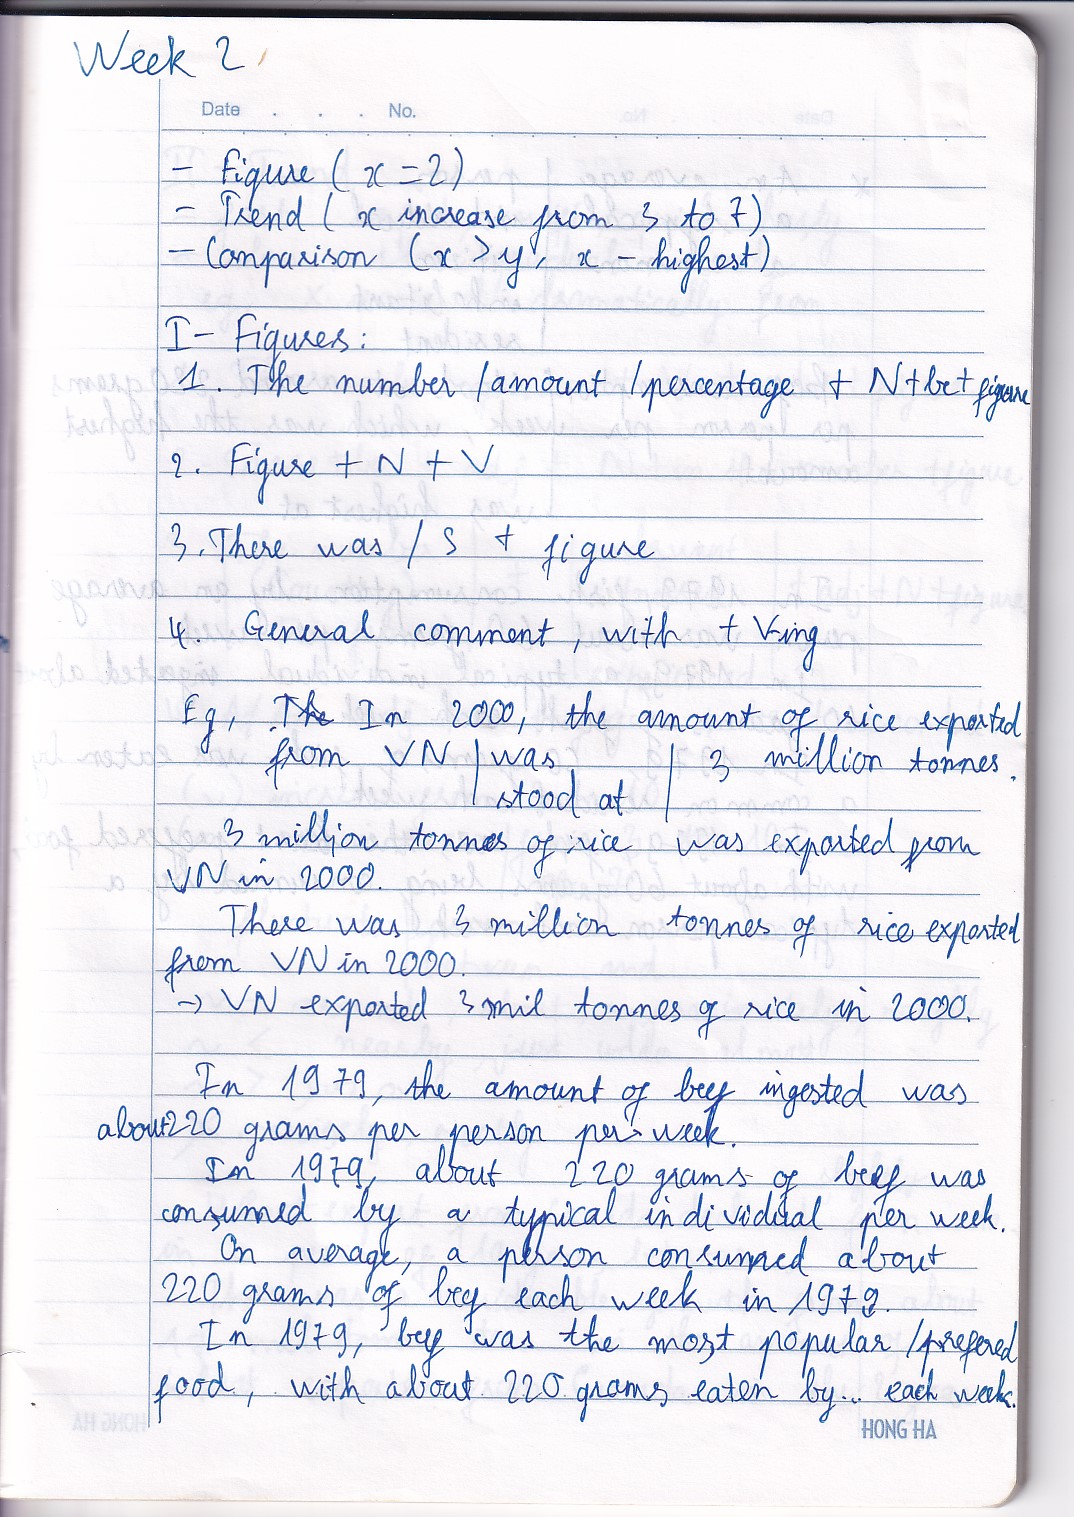 Week 2
Date . . . No.
- Figure ( x = 2)
- Trend ( x increase from 3 to 7)
- Comparison (x > y, x - highest)
I - Figures:
1. The number / amount / percentage + N + be + figure
2. Figure + N + V
3. There was / S + figure
4. General comment, with + V-ing
Eg, The In 2000, the amount of rice exported
from VN | was | 3 million tonnes.
stood at
3 million tonnes of rice was exported from
VN in 2000.
There was 3 million tonnes of rice exported
from VN in 2000.
→ VN exported 3 mil tonnes of rice in 2000.
In 1979, the amount of beef ingested was
about 220 grams per person per week.
In 1979, about 220 grams of beef was
consumed by a typical individual per week.
On average, a person consumed about
220 grams of beef each week in 1979.
In 1979, beef was the most popular / prefered
food, with about 220 grams eaten by... each week.
HONG HA